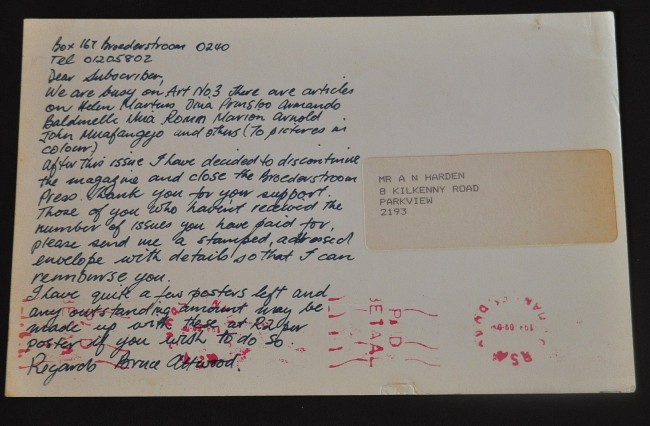 Box 167 Broederstroom 0240
Tel 01205802
Dear Subscriber,
We are busy on Art No.3 there are articles
on Helen Martins Dina Prinsloo Armando
Baldinelli Nina Romm Marion Arnold
John Muafangejo and others (70 pictures in
colour)
After this issue I have decided to discontinue
the magazine and close the Broederstroom
Press. Thank you for your support.
Those of you who haven't received the
number of issues you have paid for,
please send me a stamped, addressed
envelope with details so that I can
reimburse you.
I have quite a few posters left and
any outstanding amount may be
made up with these at R20 per
poster if you wish to do so.
Regards Bruce Attwood.
MR A N HARDEN
8 KILKENNY ROAD
PARKVIEW
2193
PAID
BETAAL
RSA